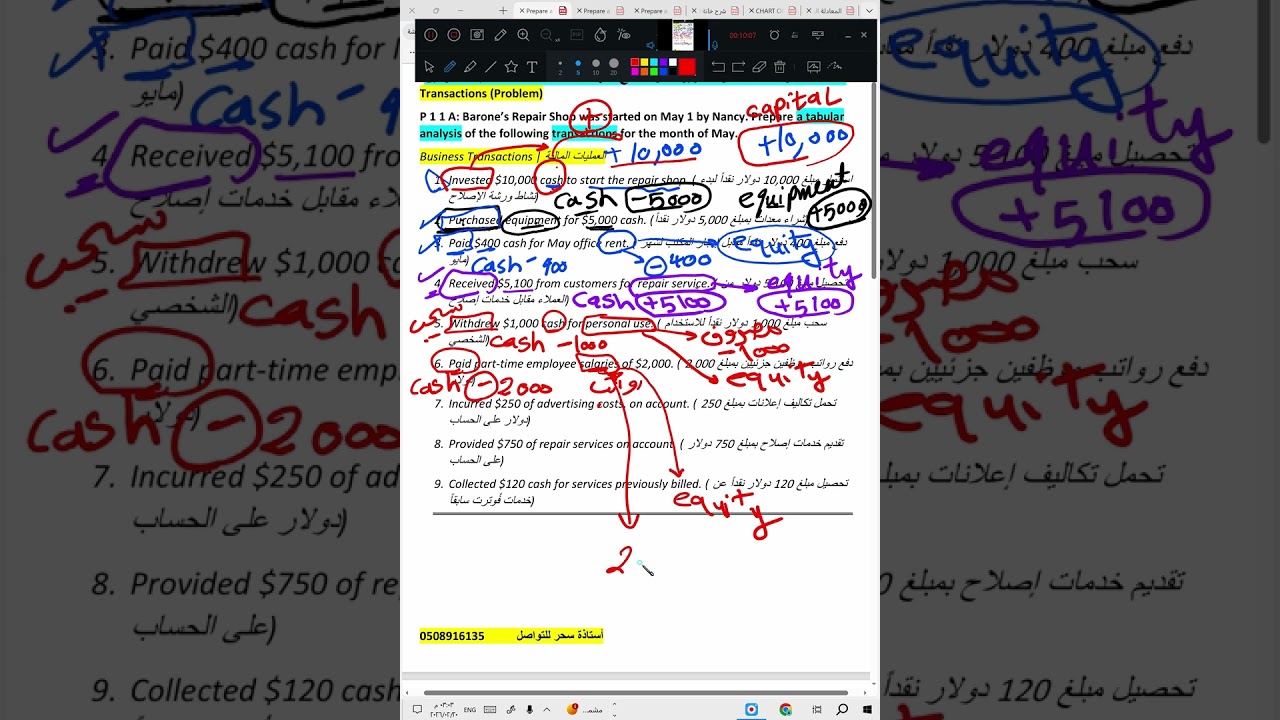 Prepare a
Prepare a
Prepare a
شرح خانة
CHART O
المعادلة ال
00:10:07
Transactions (Problem)
capital
P 1 1 A: Barone's Repair Shop was started on May 1 by Nancy. Prepare a tabular
+
+10,000
analysis of the following transactions for the month of May.
Business Transactions | العمليات المالية
+10,000
1. Invested $10,000 cash to start the repair shop. (استثمار مبلغ 10,000 دولار نقداً لبدء
نشاط ورشة الإصلاح)
cash -5000 equipment +5000
2. Purchased equipment for $5,000 cash. (شراء معدات بمبلغ 5,000 دولار نقداً)
3. Paid $400 cash for May office rent. (دفع مبلغ 400 دولار نقداً مقابل إيجار المكتب لشهر
مايو)
equity
cash -400 -400
equity
4. Received $5,100 from customers for repair service. (تحصيل مبلغ 5,100 دولار من
العملاء مقابل خدمات إصلاح)
cash +5100 +5100
سحب
5. Withdrew $1,000 cash for personal use. (سحب مبلغ 1,000 دولار نقداً للاستخدام
الشخصي)
cash -1000 -1000
6. Paid part-time employee salaries of $2,000. (دفع رواتب موظفين جزئيين بمبلغ 2,000
دولار)
equity
cash -2000 رواتب
7. Incurred $250 of advertising costs, on account. (تحمل تكاليف إعلانات بمبلغ 250
دولار على الحساب)
8. Provided $750 of repair services on account. (تقديم خدمات إصلاح بمبلغ 750 دولار
على الحساب)
9. Collected $120 cash for services previously billed. (تحصيل مبلغ 120 دولار نقداً عن
خدمات فُوترت سابقاً)
equity
2
أستاذة سحر للتواصل 0508916135
ENG